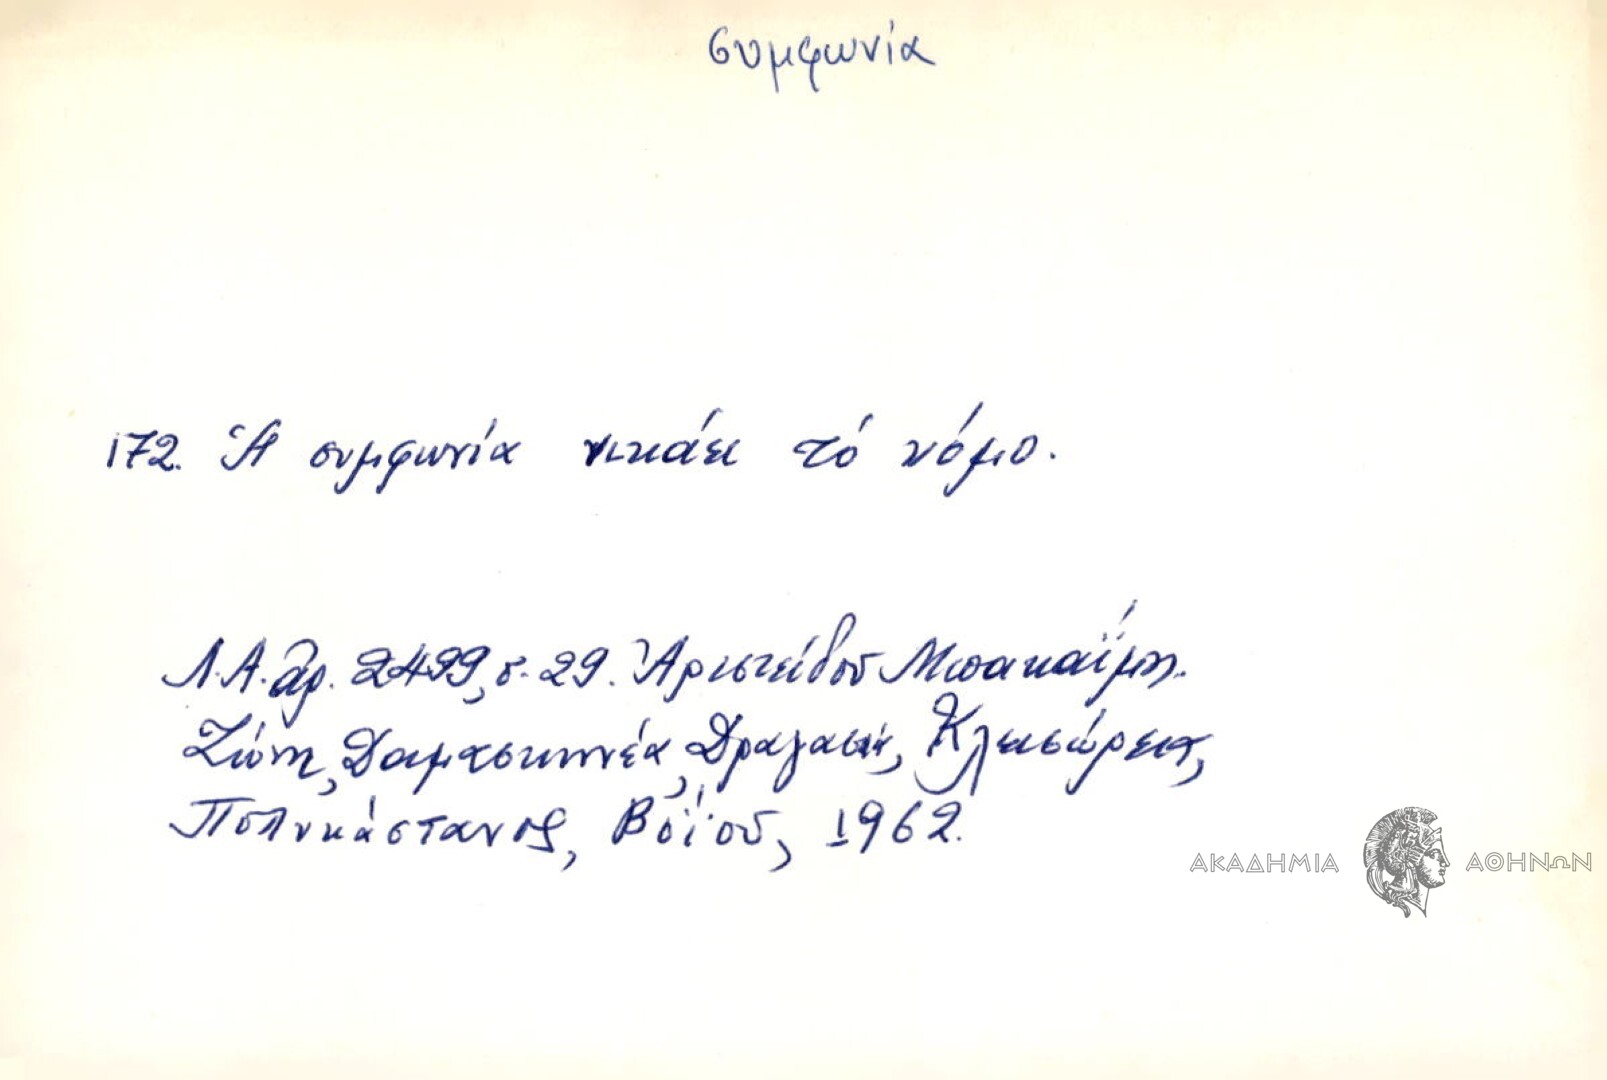 συμφωνία
172. Ἡ συμφωνία νικάει τό νόμο.
Λ.Α. ἀρ. 2499, σ. 29. Ἀριστείδου Μπακαΐμη.
Ζώνη, Δαμασκηνέα, Δραγασιά, Κλεισώρεια,
Πολυκάστανος, Βοΐου, 1962.
ΑΚΑΔΗΜΙΑ ΑΘΗΝΩΝ